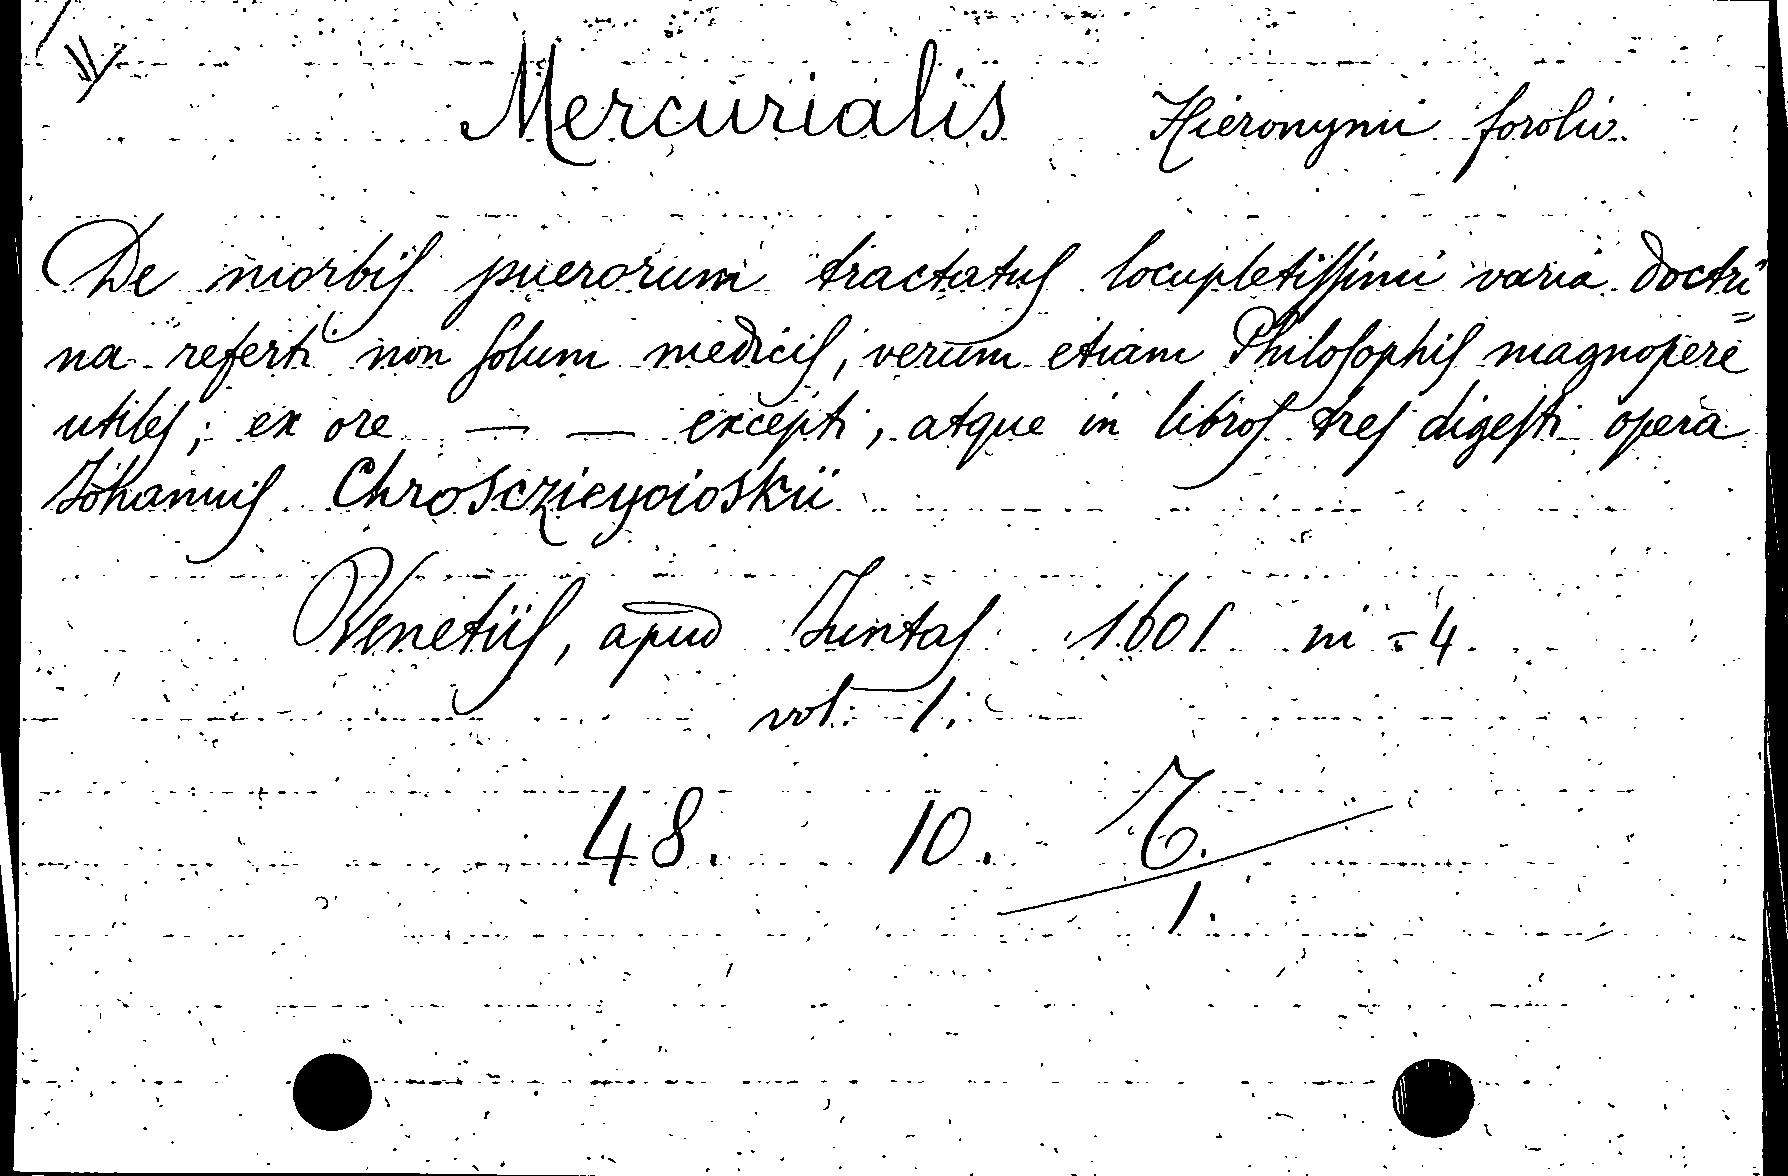 Mercurialis Hieronymi foroliv.
De morbis puerorum tractatus locupletissimi varia doctri=
na referti non solum medicis, verum etiam Philosophis magnopere
utiles; ex ore — — excepti, atque in libros tres digesti opera
Johannis Chrosczieyoioskii
Venetiis, apud Juntas 1601 in=4.
vol. 1.
48. 10. 6.
1.